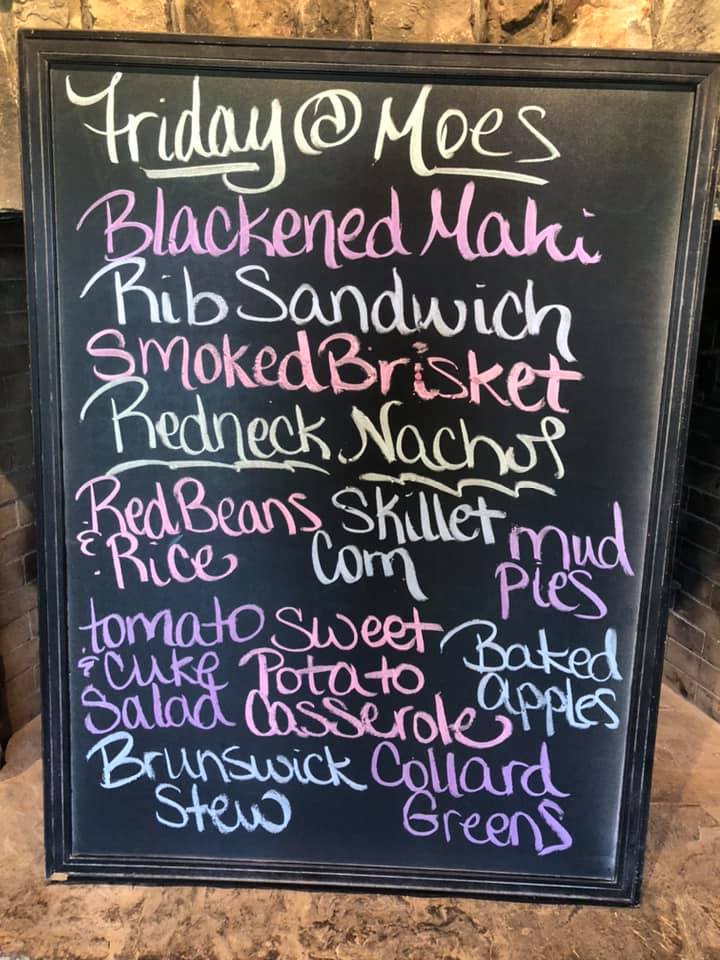 Friday @ Moes
Blackened Mahi
Rib Sandwich
Smoked Brisket
Redneck Nachos
Red Beans
& Rice
Skillet
Corn
mud
pies
tomato
& cuke
Salad
Sweet
Potato
Casserole
Baked
apples
Brunswick
Stew
Collard
Greens